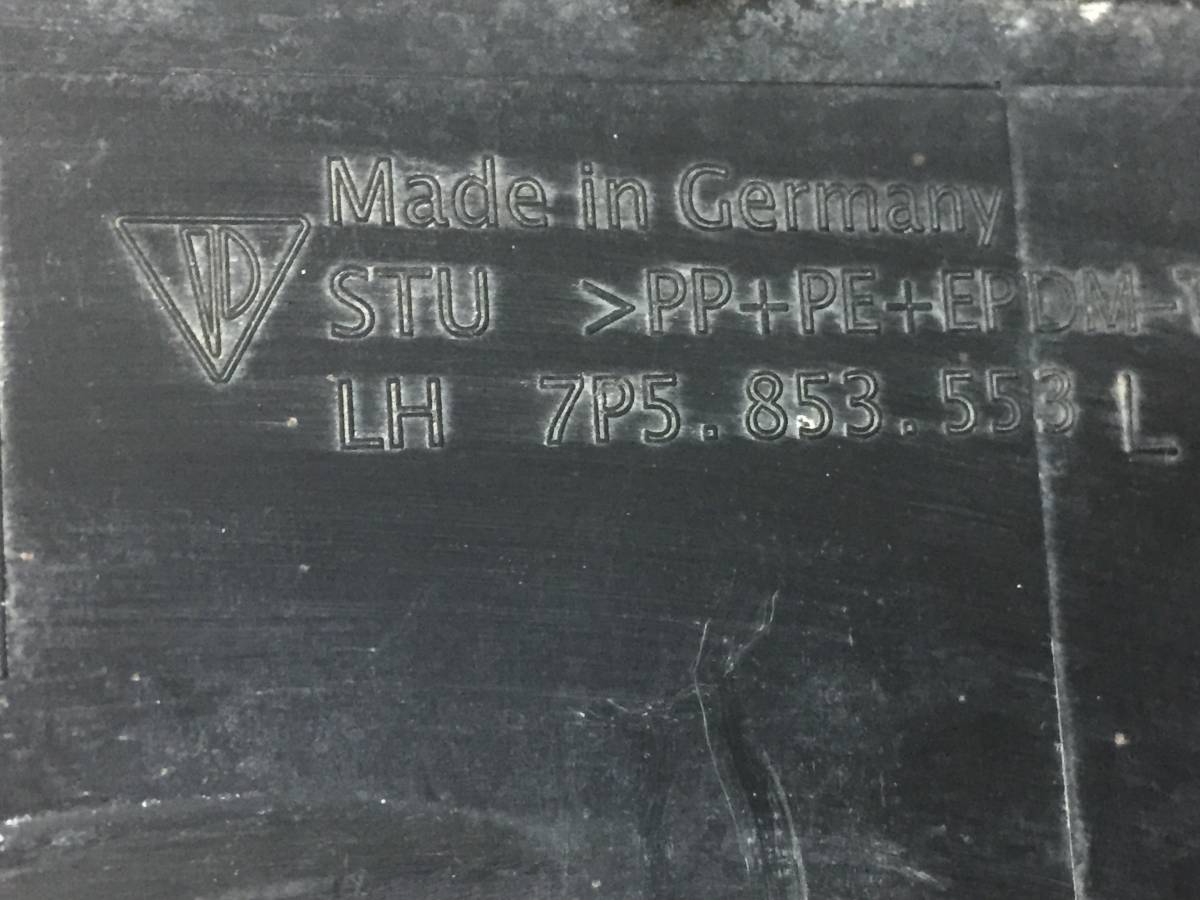 Made in Germany
STU >PP+PE+EPDM-
LH 7P5.853.553 L